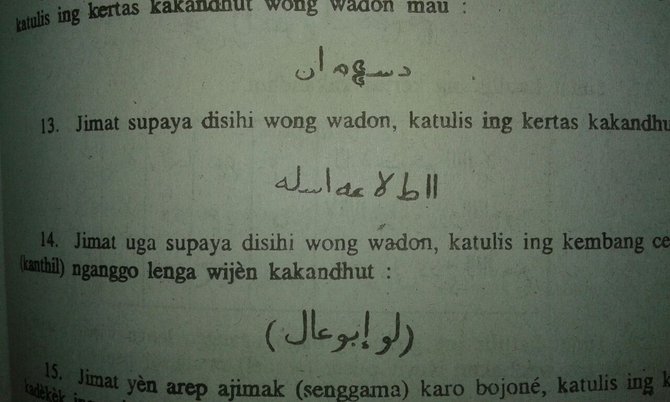 katulis ing kertas kakandhut wong wadon mau :
13. Jimat supaya disihi wong wadon, katulis ing kertas kakandhu
14. Jimat uga supaya disihi wong wadon, katulis ing kembang ce
(kanthil) nganggo lenga wijèn kakandhut :
(لو إبو عال)
15. Jimat yèn arep ajimak (senggama) karo bojoné, katulis ing k
kadèkèk